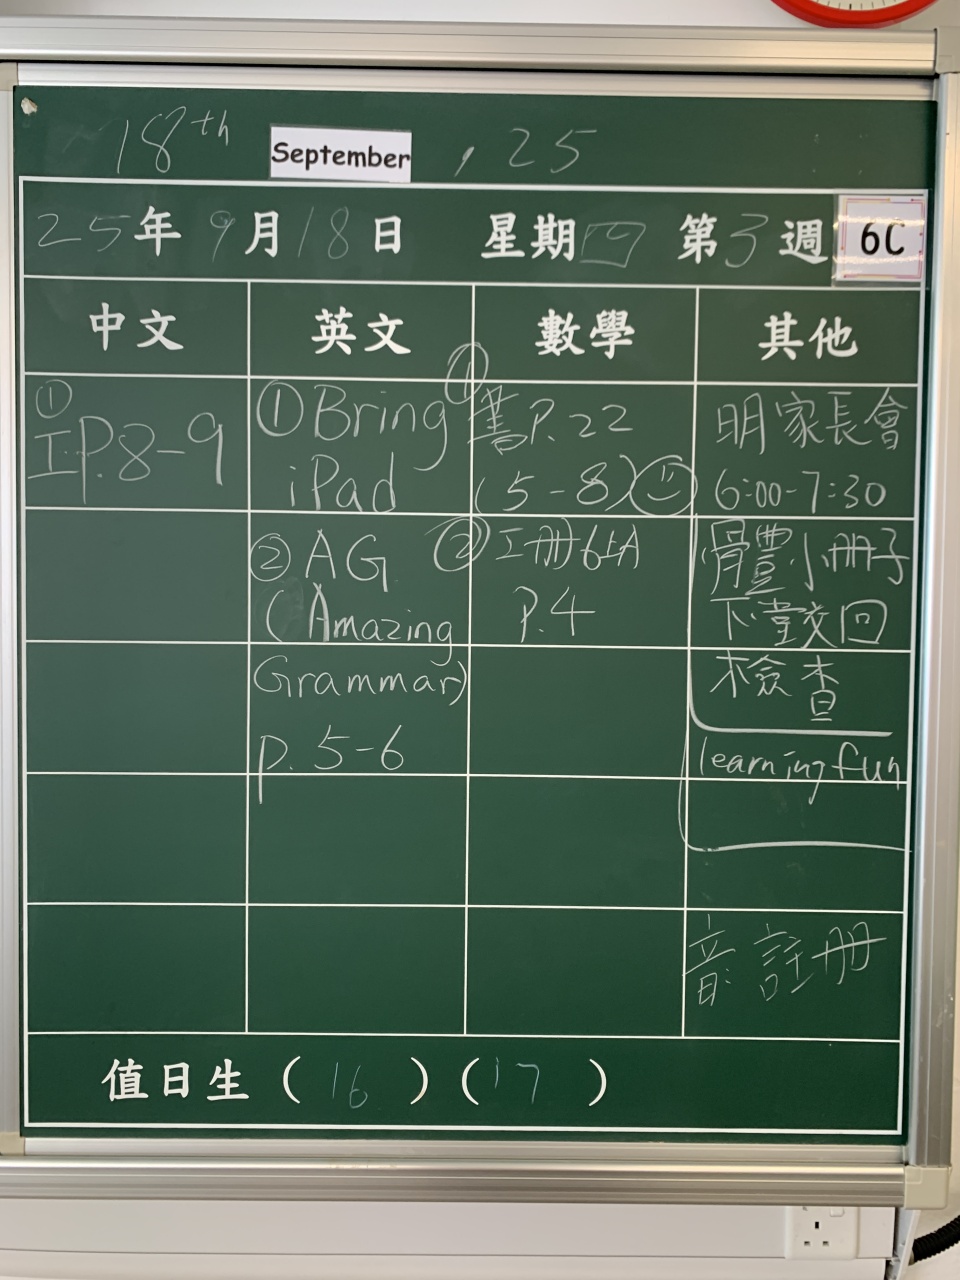 18th September, 25
25年9月18日 星期四 第3週 6C
中文 英文 數學 其他
① 工P.8-9
① Bring
iPad
② AG
(Amazing
Grammar)
p. 5-6
① 書P.22
(5-8)
② 工冊6上A
P.4
明家長會
6:00-7:30
體豐小冊子
下堂交回
檢查
learning fun
音 註冊
值日生 (16) (17)